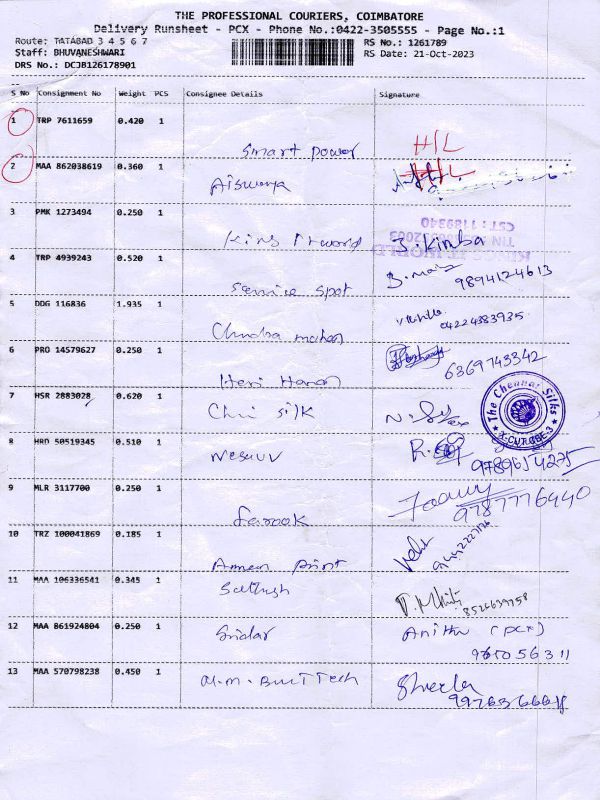 THE PROFESSIONAL COURIERS, COIMBATORE
Delivery Runsheet - PCX - Phone No.:0422-3505555 - Page No.:1
Route: TATABAD 3 4 5 6 7
Staff: BHUVANESHWARI
DRS No.: DCJB126178901
RS No.: 1261789
RS Date: 21-Oct-2023
S No Consignment No Weight PCS Consignee Details Signature
1 TRP 7611659 0.420 1
Smart power H/L
2 MAA 862038619 0.360 1
Aiswarya H/L
3 PMK 1273494 0.250 1
CST: 1189340
TIN
KING'S IT WORLD
Kins It world J. Kimba
4 TRP 4939243 0.520 1
Service spot 9894124613
5 DDG 116836 1.935 1
Chindba mohan 04224383935
6 PRO 14579627 0.250 1
Hari Haran 6369743342
7 HSR 2883028 0.620 1
Chni silk
The Chennai Silks
X-CUT ROAD CBE-3
8 HRD 50519345 0.510 1
9789654225
9 MLR 3117700 0.250 1
farook 9787776440
10 TRZ 100041869 0.185 1
Ameen print
11 MAA 106336541 0.345 1
Sathish
12 MAA 861924804 0.250 1
Sridar Anithu (PCX)
9650 563 11
13 MAA 570798238 0.450 1
M.M. Built Tech Sheela